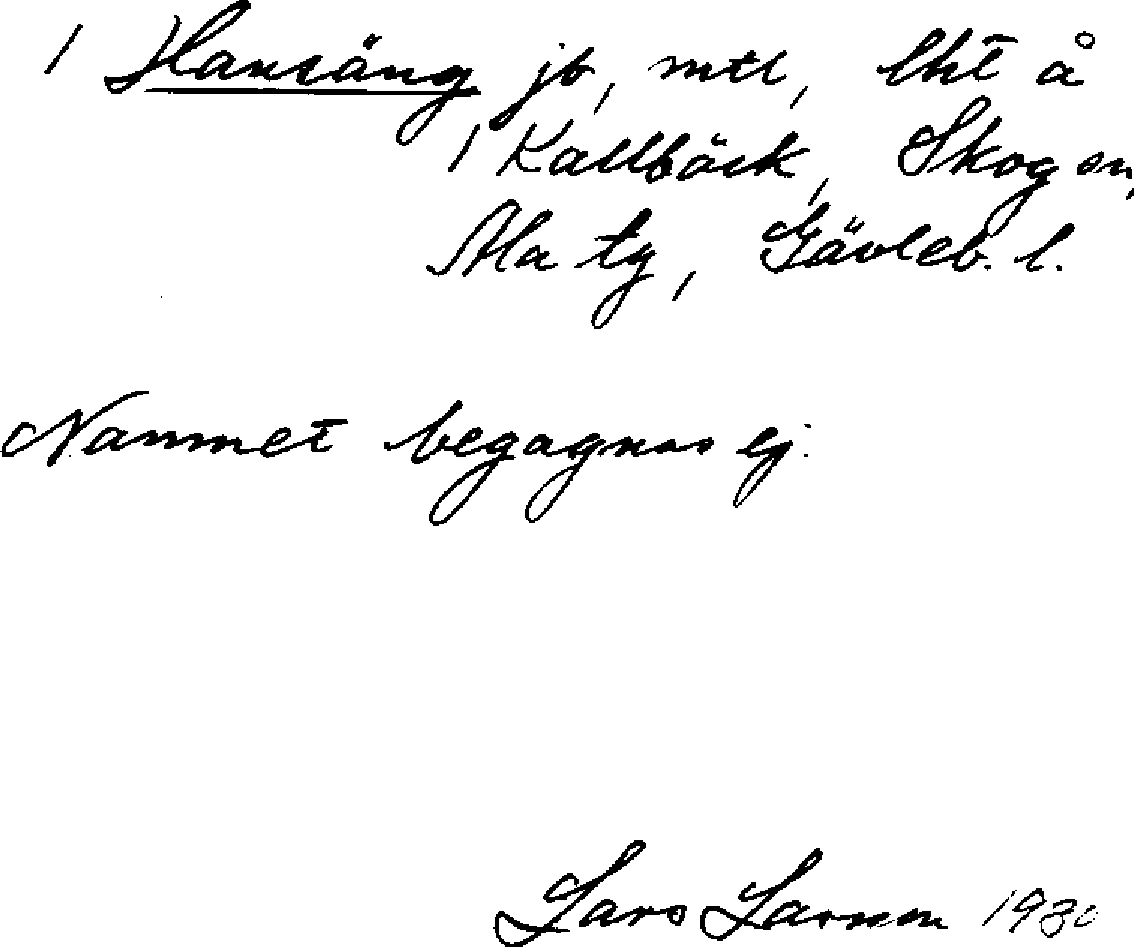 1 Hansäng jb, mtl, lht å
1 Kallbäck, Skog sn,
Ala tg, Gävleb. l.
Namnet begagnas ej.
Lars Larsson 1930